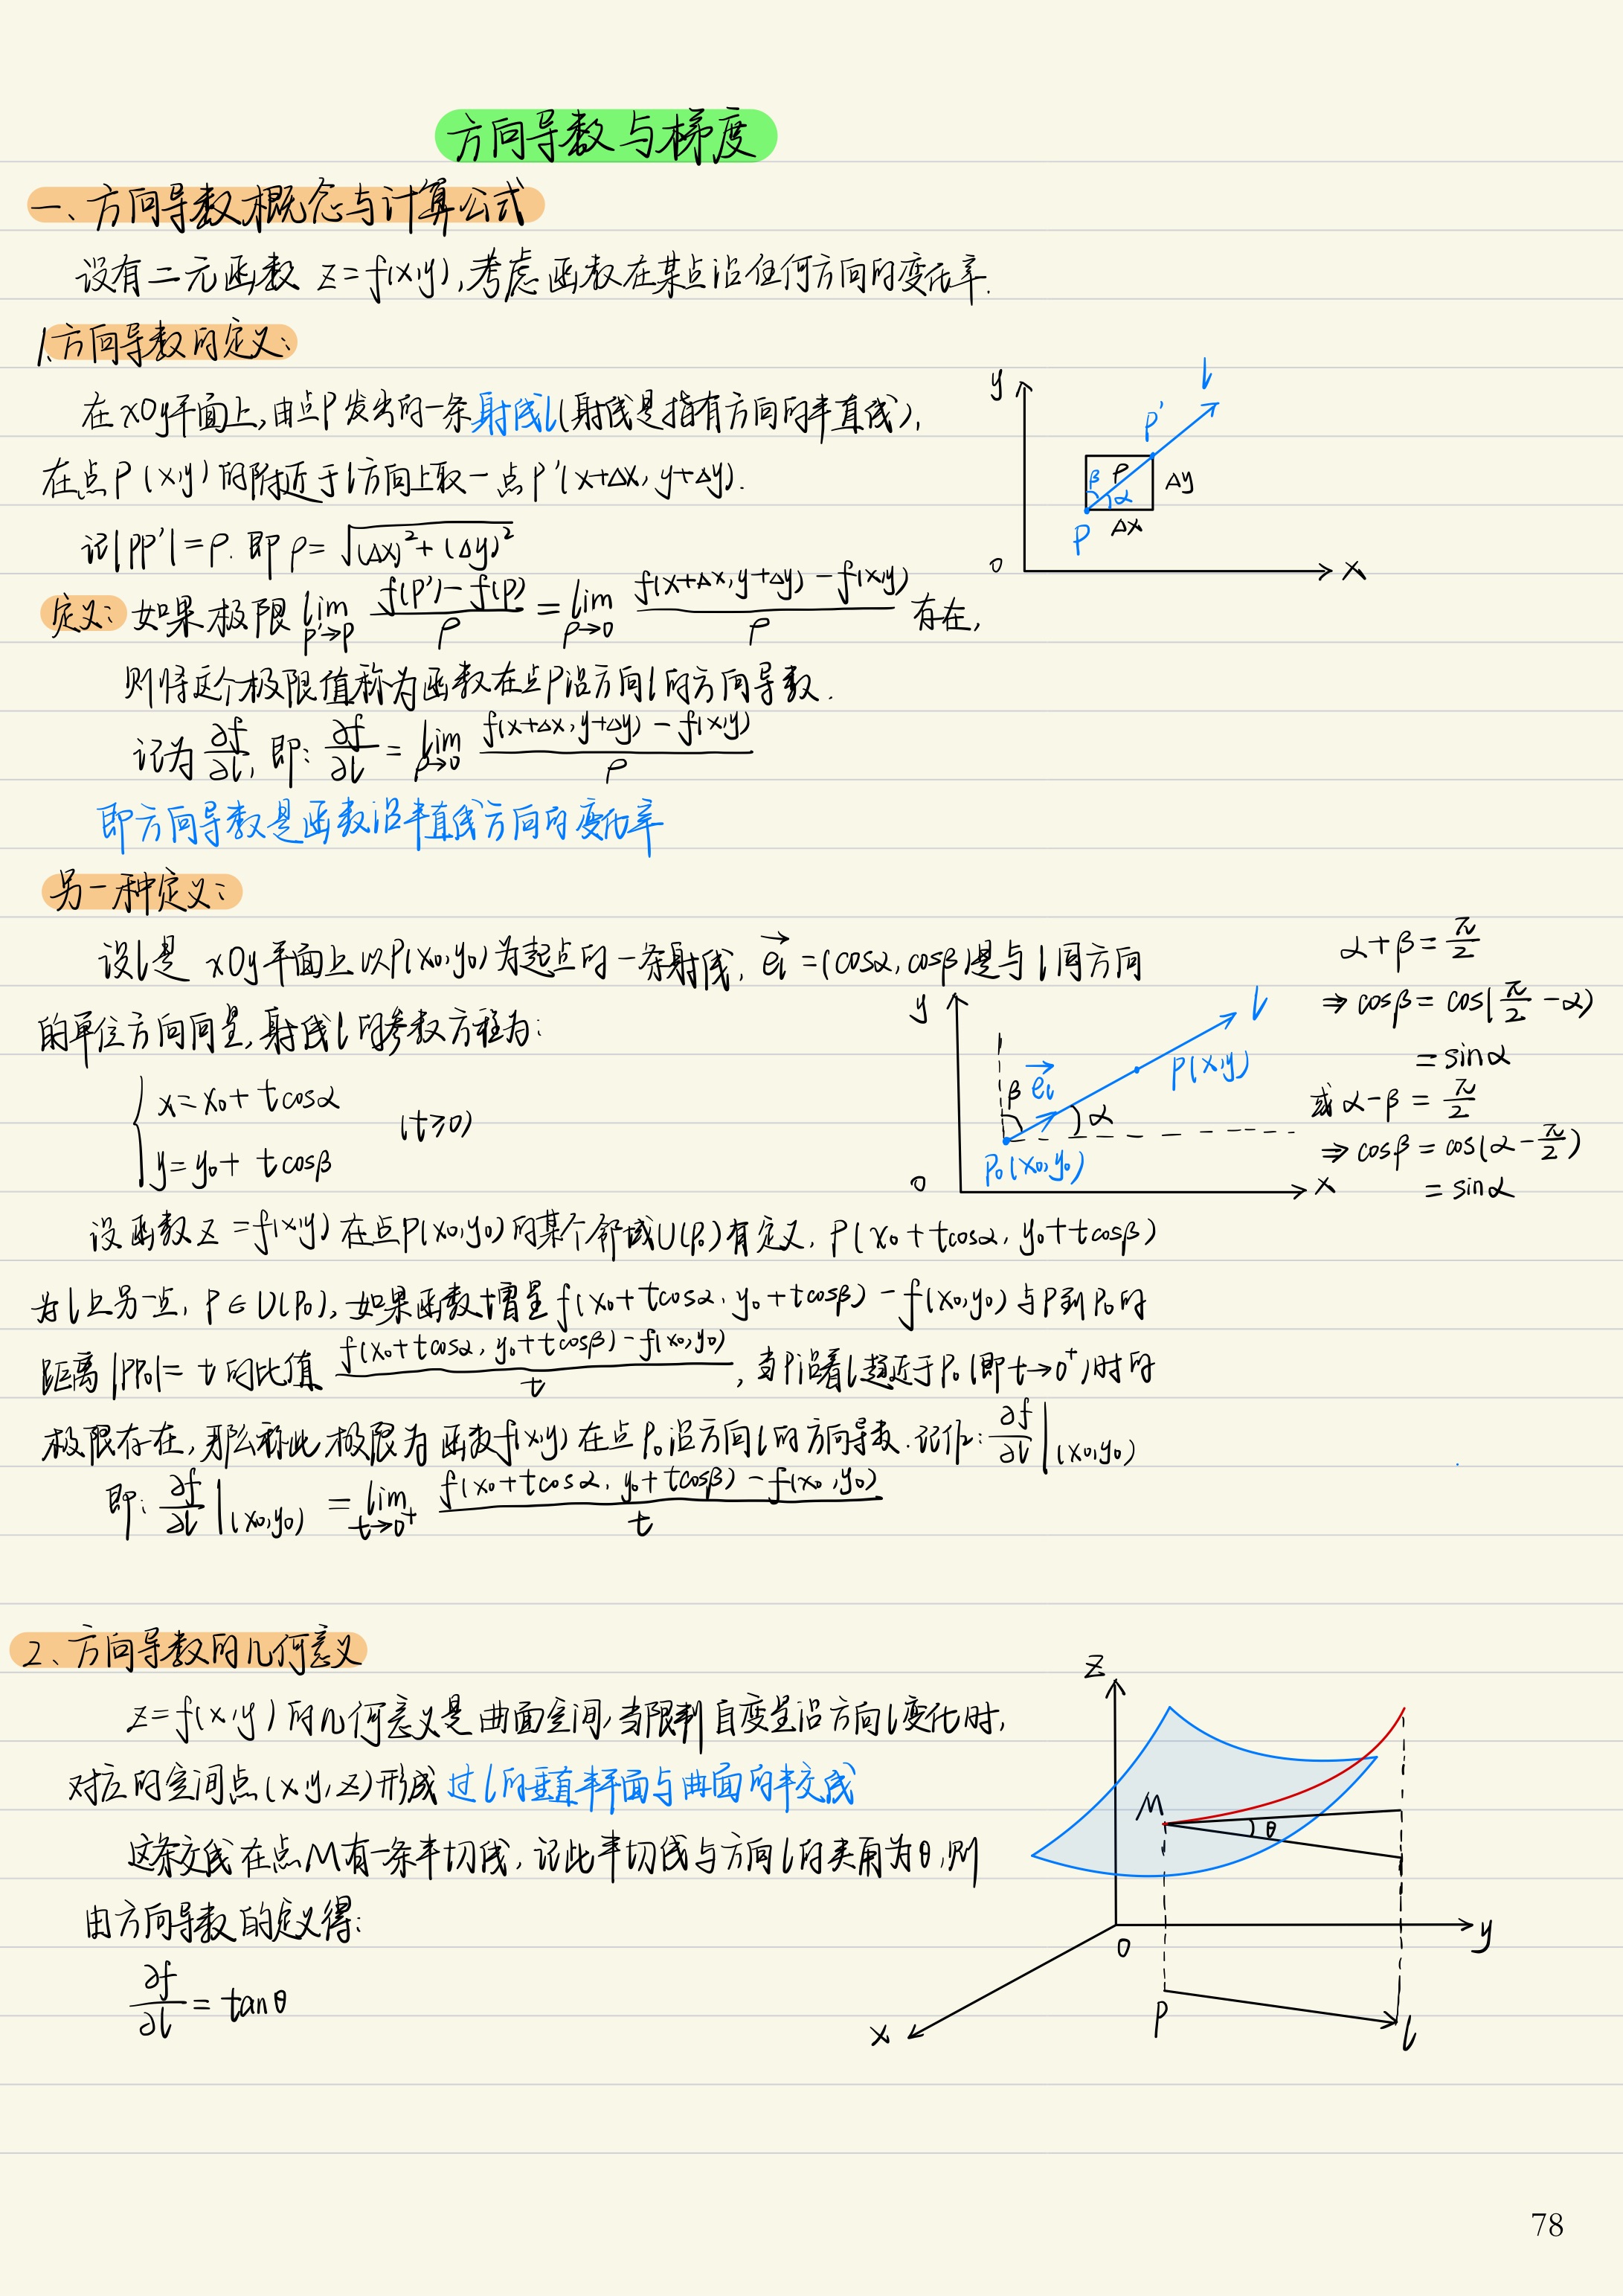 方向导数与梯度
一、方向导数概念与计算公式
设有二元函数 z=f(x,y),考虑函数在某点沿任何方向的变化率.
1.方向导数的定义:
在xOy平面上,由点P发出的一条射线l(射线是指有方向的半直线),
在点P(x,y)的附近于l方向上取一点P'(x+Δx, y+Δy).
记|PP'|=ρ. 即 ρ=√((Δx)²+(Δy)²)
y
l
P'
β ρ
α
Δy
P
Δx
0
x
定义: 如果极限 lim_{P'→P} (f(P')-f(P))/ρ = lim_{ρ→0} (f(x+Δx,y+Δy)-f(x,y))/ρ 存在,
则将这个极限值称为函数在点P沿方向l的方向导数.
记为 ∂f/∂l, 即: ∂f/∂l = lim_{ρ→0} (f(x+Δx,y+Δy)-f(x,y))/ρ
即方向导数是函数沿半直线方向的变化率
另一种定义:
设l是 xOy平面上以P(x₀,y₀)为起点的一条射线, e_l→ =(cosα,cosβ)是与l同方向
的单位方向向量,射线l的参数方程为:
{ x=x₀+tcosα
y=y₀+tcosβ
(t≥0)
y
l
β
e_l→
P(x,y)
α
P₀(x₀,y₀)
0
x
α+β=π/2
⇒cosβ=cos(π/2-α)
=sinα
或 α-β=π/2
⇒cosβ=cos(α-π/2)
=sinα
设函数z=f(x,y)在点P(x₀,y₀)的某个邻域U(P₀)有定义, P(x₀+tcosα, y₀+tcosβ)
为l上另一点, P∈U(P₀),如果函数增量f(x₀+tcosα, y₀+tcosβ)-f(x₀,y₀)与P到P₀的
距离|PP₀|=t的比值 (f(x₀+tcosα, y₀+tcosβ)-f(x₀,y₀))/t, 当P沿着l趋近于P₀(即t→0⁺)时的
极限存在,那么称此极限为函数f(x,y)在点P₀沿方向l的方向导数.记作: ∂f/∂l|(x₀,y₀)
即: ∂f/∂l|(x₀,y₀) = lim_{t→0⁺} (f(x₀+tcosα, y₀+tcosβ)-f(x₀,y₀))/t
2、方向导数的几何意义
z=f(x,y)的几何意义是曲面空间,当限制自变量沿方向l变化时,
对应的空间点(x,y,z)形成过l的垂直半平面与曲面的半交线
这条交线在点M有一条半切线,记此半切线与方向l的夹角为θ,则
由方向导数的定义得:
∂f/∂l=tanθ
z
M
θ
0
y
x
P
l
78